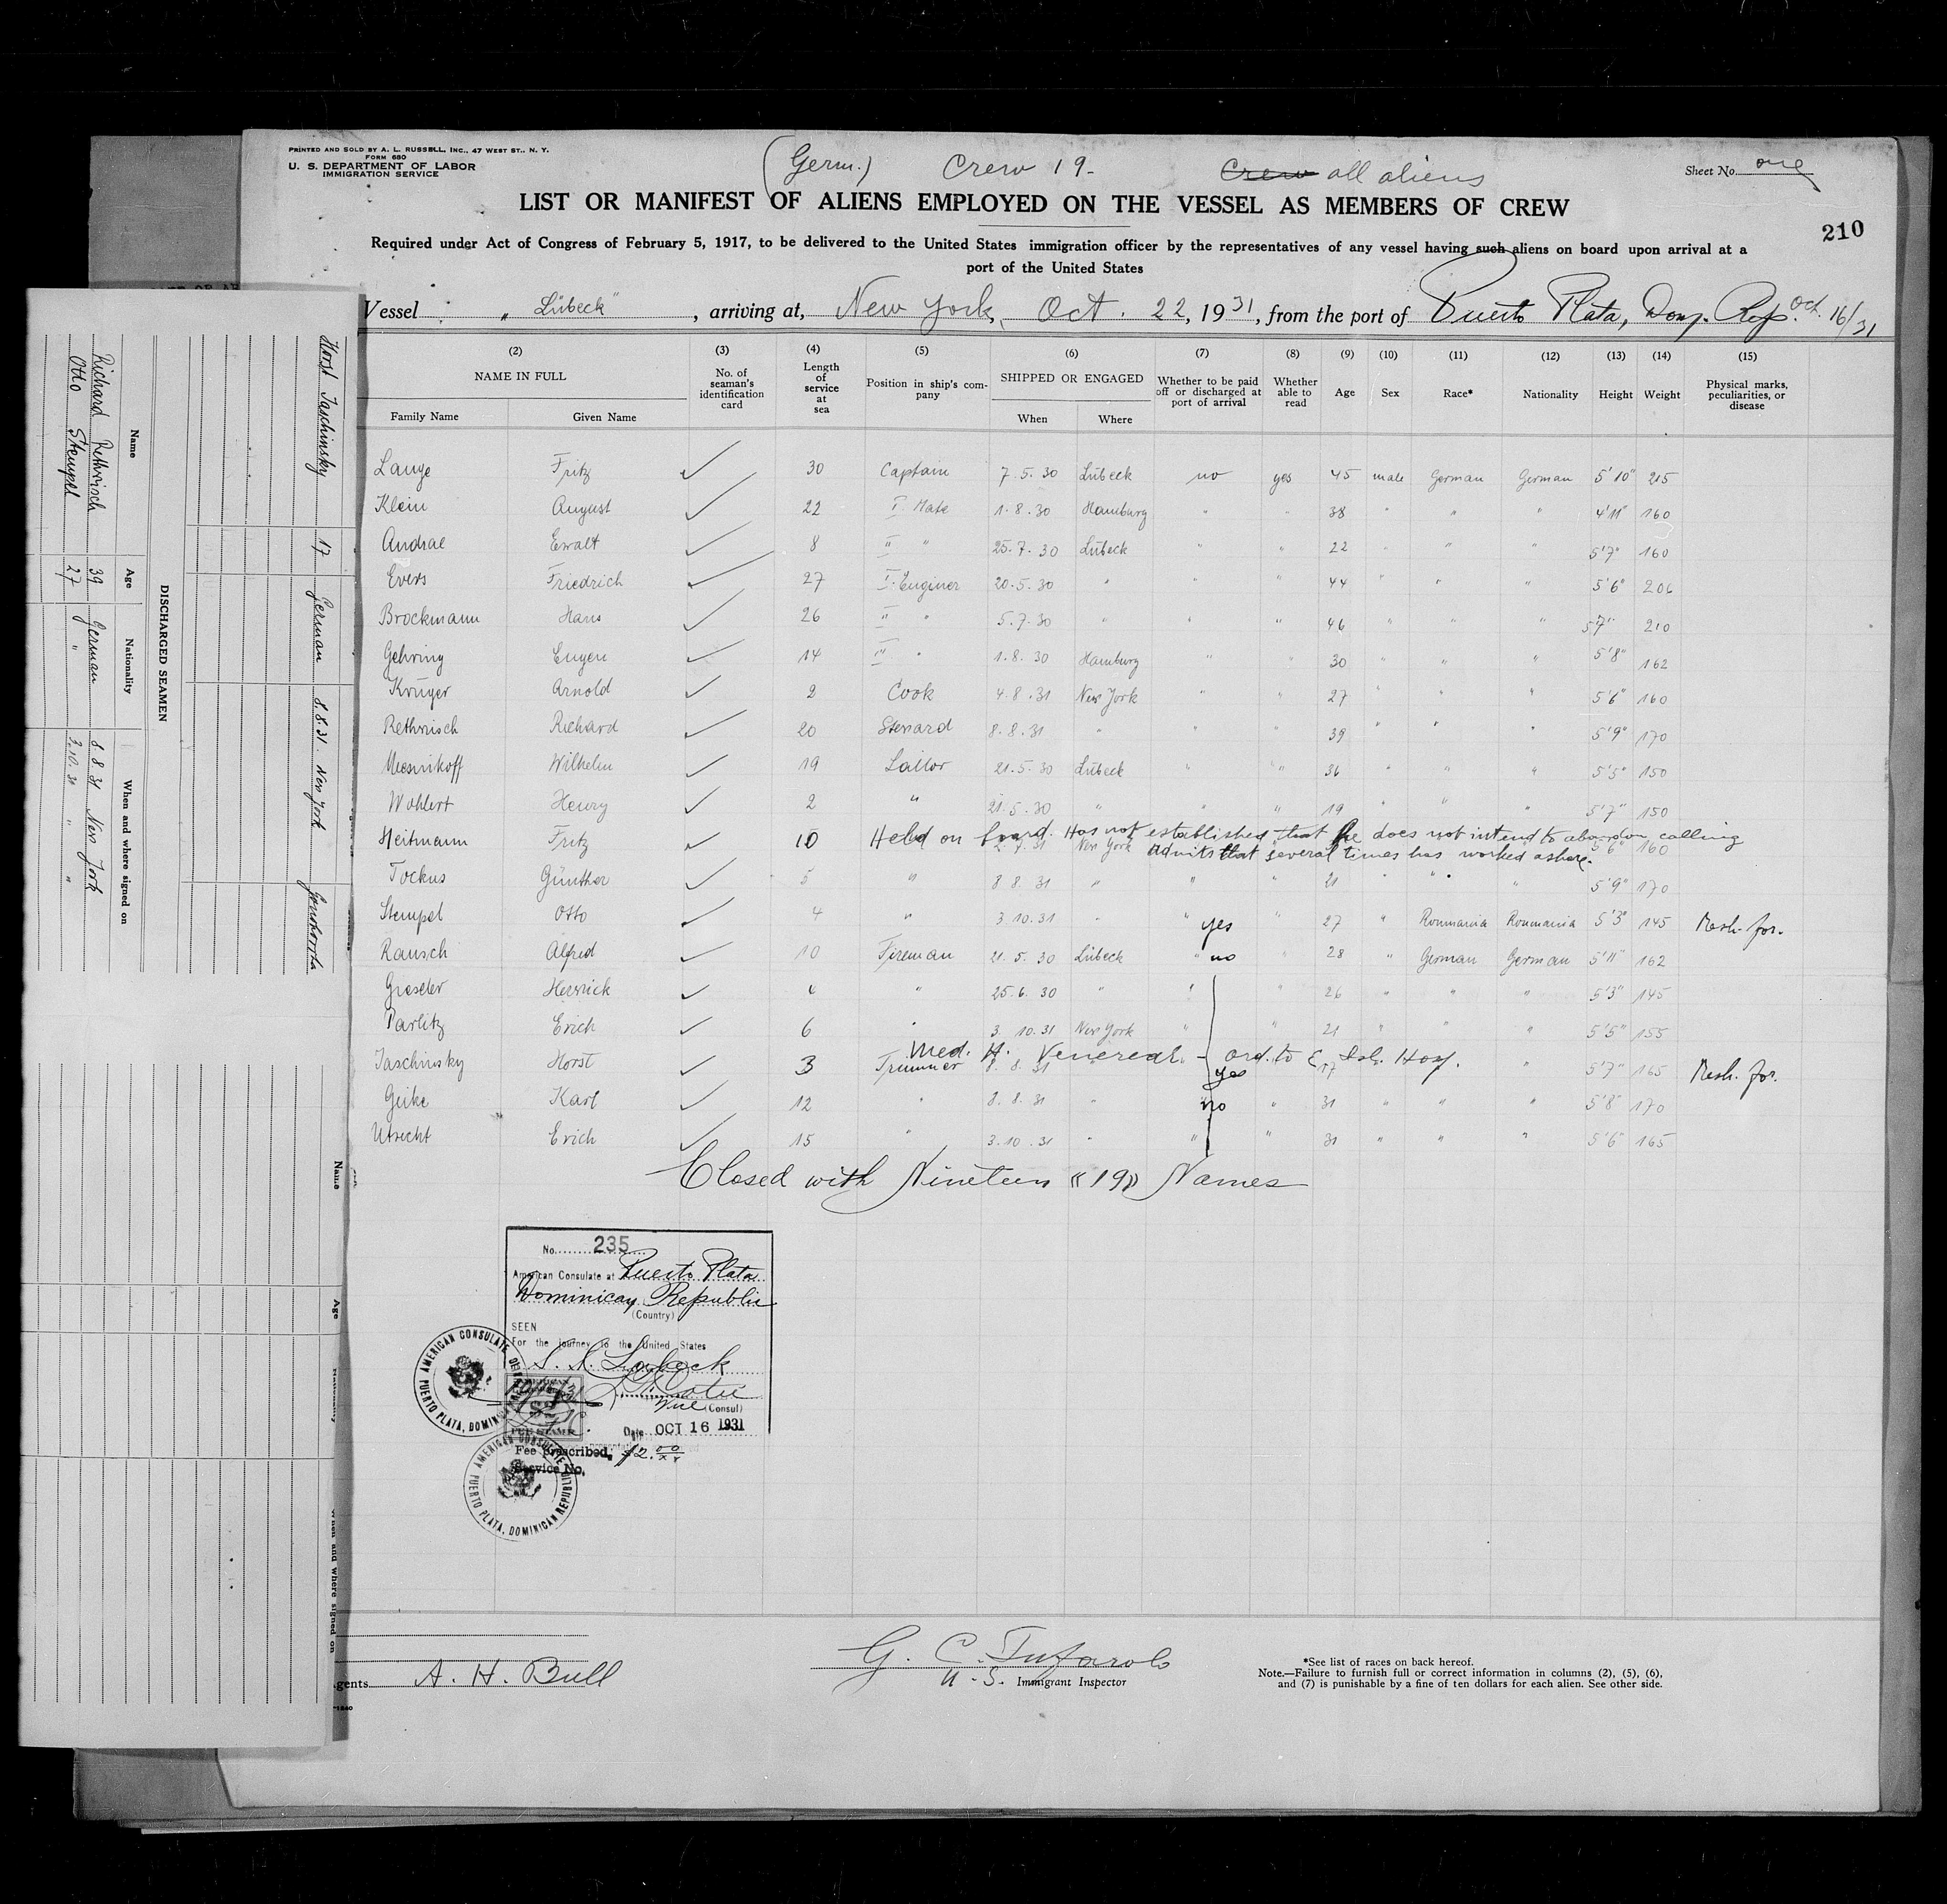 PRINTED AND SOLD BY A. L. RUSSELL, INC., 47 WEST ST., N. Y.
FORM 680
U. S. DEPARTMENT OF LABOR
IMMIGRATION SERVICE
(Germ.) Crew 19- Crew all aliens
Sheet No. one
LIST OR MANIFEST OF ALIENS EMPLOYED ON THE VESSEL AS MEMBERS OF CREW
210
Required under Act of Congress of February 5, 1917, to be delivered to the United States immigration officer by the representatives of any vessel having such aliens on board upon arrival at a
port of the United States
Vessel "Lübeck", arriving at, New York, Oct. 22, 1931, from the port of Puerto Plata, Dom. Rep. Oct. 16/31
(2) NAME IN FULL Family Name Given Name
(3) No. of seaman's identification card
(4) Length of service at sea
(5) Position in ship's company
(6) SHIPPED OR ENGAGED When Where
(7) Whether to be paid off or discharged at port of arrival
(8) Whether able to read
(9) Age
(10) Sex
(11) Race*
(12) Nationality
(13) Height
(14) Weight
(15) Physical marks, peculiarities, or disease
Lange Fritz 30 Captain 7.5.30 Lübeck no yes 45 male German German 5'10" 215
Klein August 22 I. Mate 1.8.30 Hamburg " " 38 " " " 4'11" 160
Andrae Ewalt 8 II " 25.7.30 Lübeck " " 22 " " " 5'7" 160
Evers Friedrich 27 I. Enginer 20.5.30 " " " 44 " " " 5'6" 206
Brockmann Hans 26 II " 5.7.30 " " " 46 " " " 5'7" 210
Gehring Eugen 14 III " 1.8.30 Hamburg " " 30 " " " 5'8" 162
Krüger Arnold 2 Cook 4.8.31 New York " " 27 " " " 5'6" 160
Rethwisch Richard 20 Steward 8.8.31 " " " 39 " " " 5'9" 170
Wilhelm 19 Sailor 21.5.30 Lübeck " " 36 " " " 5'5" 150
Wohlert Henry 2 " 21.5.30 " " " 19 " " " 5'7" 150
Heitmann Fritz 10 Held on board. Has not established that he does not intend to abandon calling
New York Admits that several times has worked ashore. 5'6" 160
Tockus Günther 5 " 8.8.31 " " " 21 " " " 5'9" 170
Stempel Otto 4 " 3.10.31 " " yes " 27 " Roumania Roumania 5'3" 145 Resh. for.
Rausch Alfred 10 Fireman 21.5.30 Lübeck " no " 28 " German German 5'11" 162
Gieseler 6 " 25.6.30 " " " 26 " " " 5'3" 145
Parlitz Erich 6 " 3.10.31 New York " " 21 " " " 5'5" 155
Med. H. Venereal - ord. to E. Isl. Hosp.
Taschinsky Horst 3 Trimmer 8.8.31 yes 17 " 5'7" 165 Resh. for.
Geike Karl 12 " 8.8.31 " no " 31 " " " 5'8" 170
Utrecht Erich 15 " 3.10.31 " " " 31 " " " 5'6" 165
Closed with Nineteen "19" Names
No. 235
American Consulate at Puerto Plata
Dominican Republic
(Country)
SEEN
For the journey to the United States
S. S. Luebeck
Vice (Consul)
Date OCT 16 1931
Fee Prescribed, $2.00
Service No.
AMERICAN CONSULATE PUERTO PLATA, DOMINICAN REPUBLIC
AMERICAN CONSULATE PUERTO PLATA, DOMINICAN REPUBLIC
FEE STAMP
gents A. H. Bull
G. C. Tufarolo
U. S. Immigrant Inspector
*See list of races on back hereof.
Note.—Failure to furnish full or correct information in columns (2), (5), (6),
and (7) is punishable by a fine of ten dollars for each alien. See other side.
DISCHARGED SEAMEN
Name Age Nationality When and where signed on
Richard Rethwisch 39 German 8.8.31 New York
Otto Stempel 27 " 3.10.31 "
Horst Taschinsky 17 German 8.8.31. New York
Name Age When and where signed on